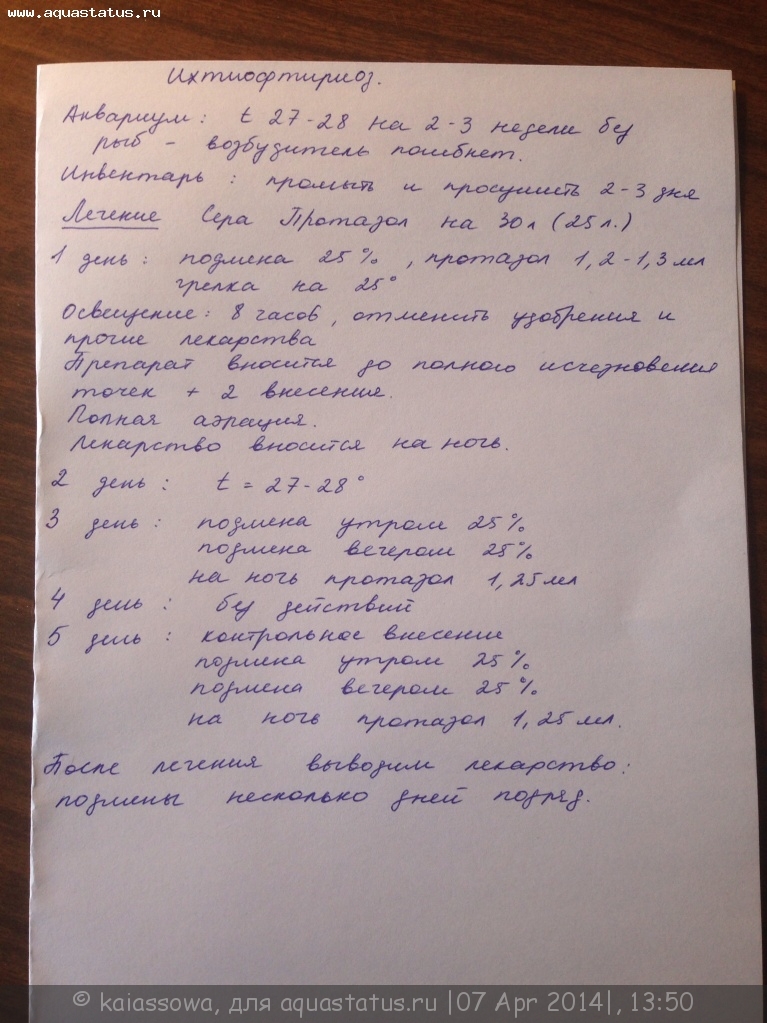 www.aquastatus.ru
Ихтиофтириоз.
Аквариум: t 27-28 на 2-3 недели без
рыб - возбудитель погибнет.
Инвентарь: промыть и просушить 2-3 дня
Лечение Сера Протазол на 30л (25л.)
1 день: подмена 25%, протазол 1,2-1,3 мл
грелка на 25°
Освещение: 8 часов, отменить удобрения и
прочие лекарства
Препарат вносится до полного исчезновения
точек + 2 внесения.
Полная аэрация.
Лекарство вносится на ночь.
2 день: t = 27-28°
3 день: подмена утром 25%
подмена вечером 25%
на ночь протазол 1,25 мл
4 день: без действий
5 день: контрольное внесение
подмена утром 25%
подмена вечером 25%
на ночь протазол 1,25 мл.
После лечения выводим лекарство:
подмены несколько дней подряд.
© kaiassowa, для aquastatus.ru |07 Apr 2014|, 13:50